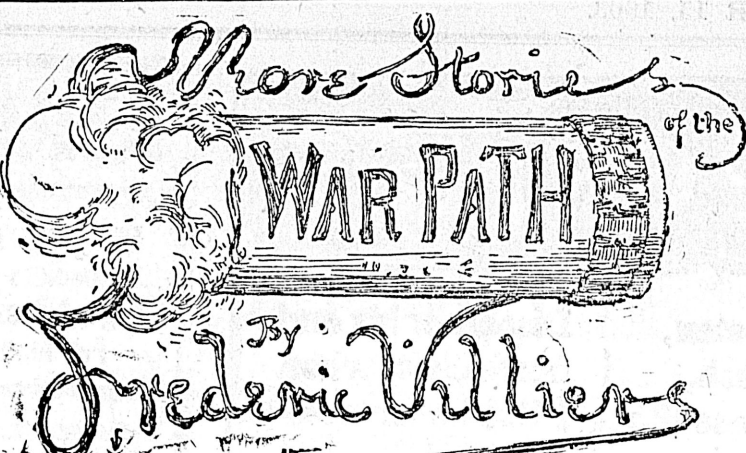 More Stories
of the
WAR PATH
By
Frederic Villiers